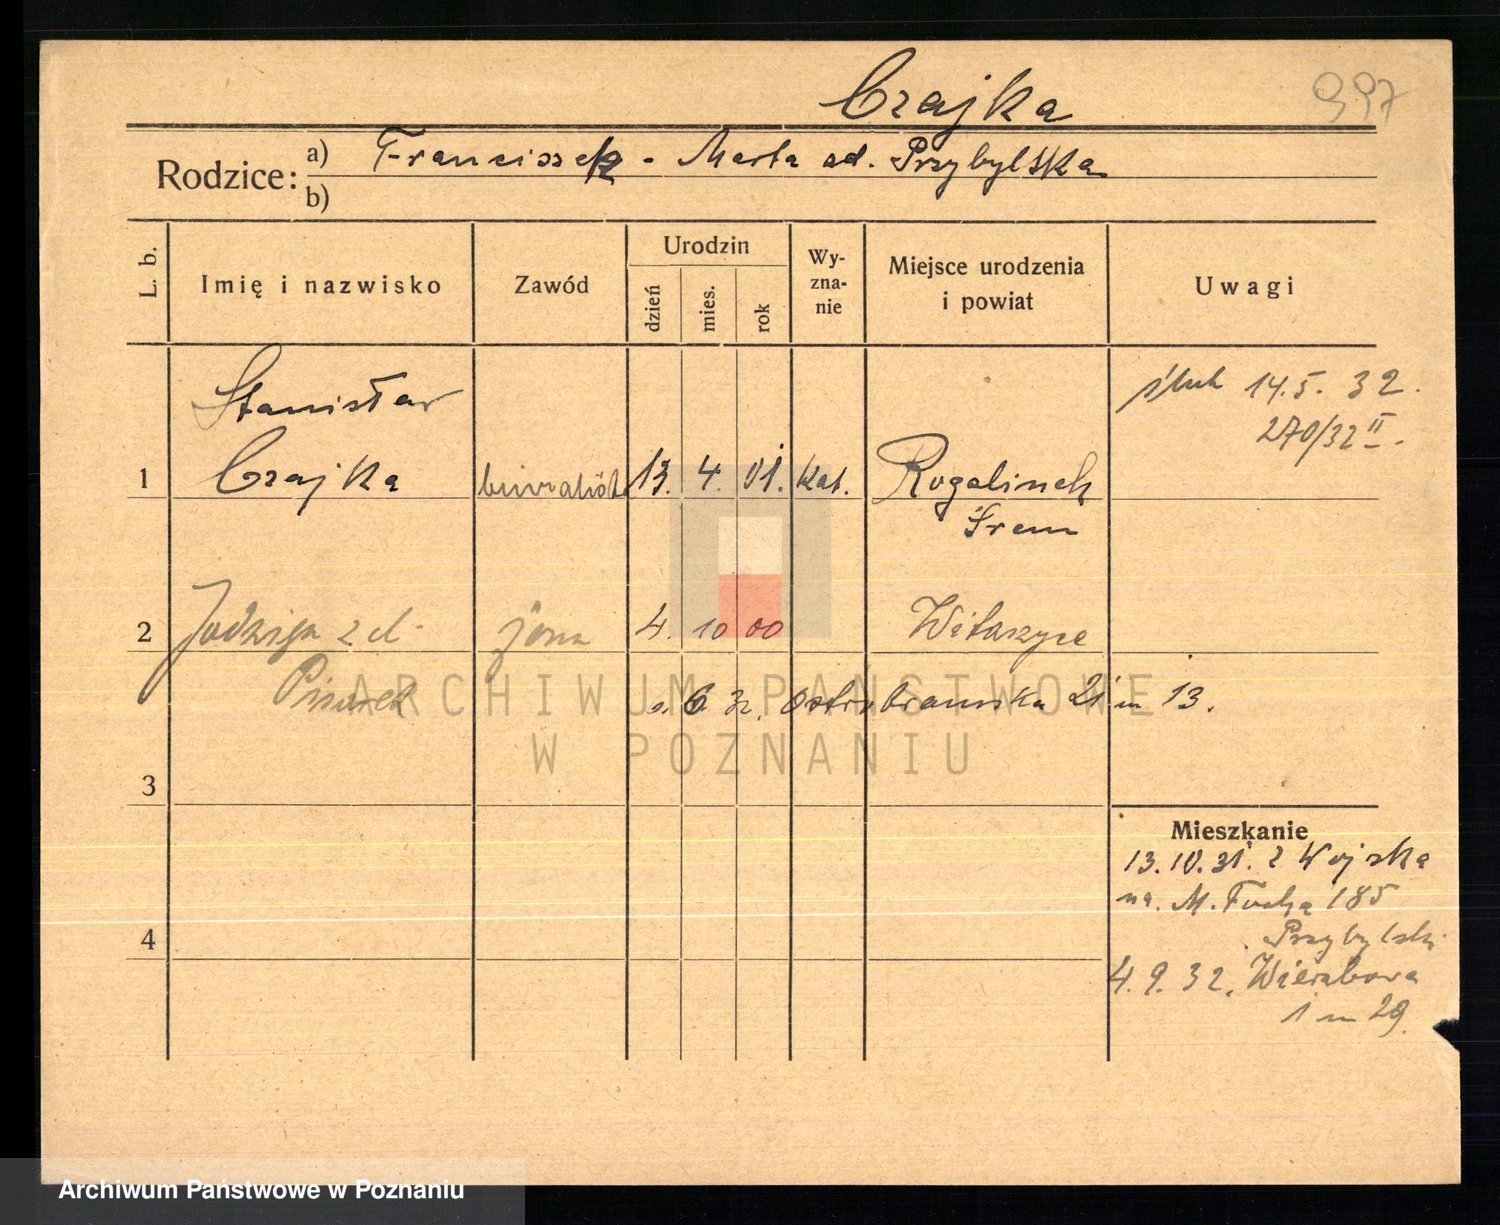 Czajka
997
Rodzice:
a) Franciszek - Marta od. Przybylska
b)
L. b.
Imię i nazwisko
Zawód
Urodzin
dzień
mies.
rok
Wy-
zna-
nie
Miejsce urodzenia
i powiat
Uwagi
ślub 14.5. 32.
270/32 II.
Stanisław
1 Czajka 13. 4. 01. kat. Rogalinek
Śrem
2 Jadwiga z d. żona 4. 10 00 Witaszyce
6. 32. Ostrobramska 21 m 13.
3
4
Mieszkanie
13.10.31. z Wojska
na. M. Focha 185
Przybylski
4. 9. 32. Wierzbowa
1 m 29.
ARCHIWUM PAŃSTWOWE
W POZNANIU
Archiwum Państwowe w Poznaniu